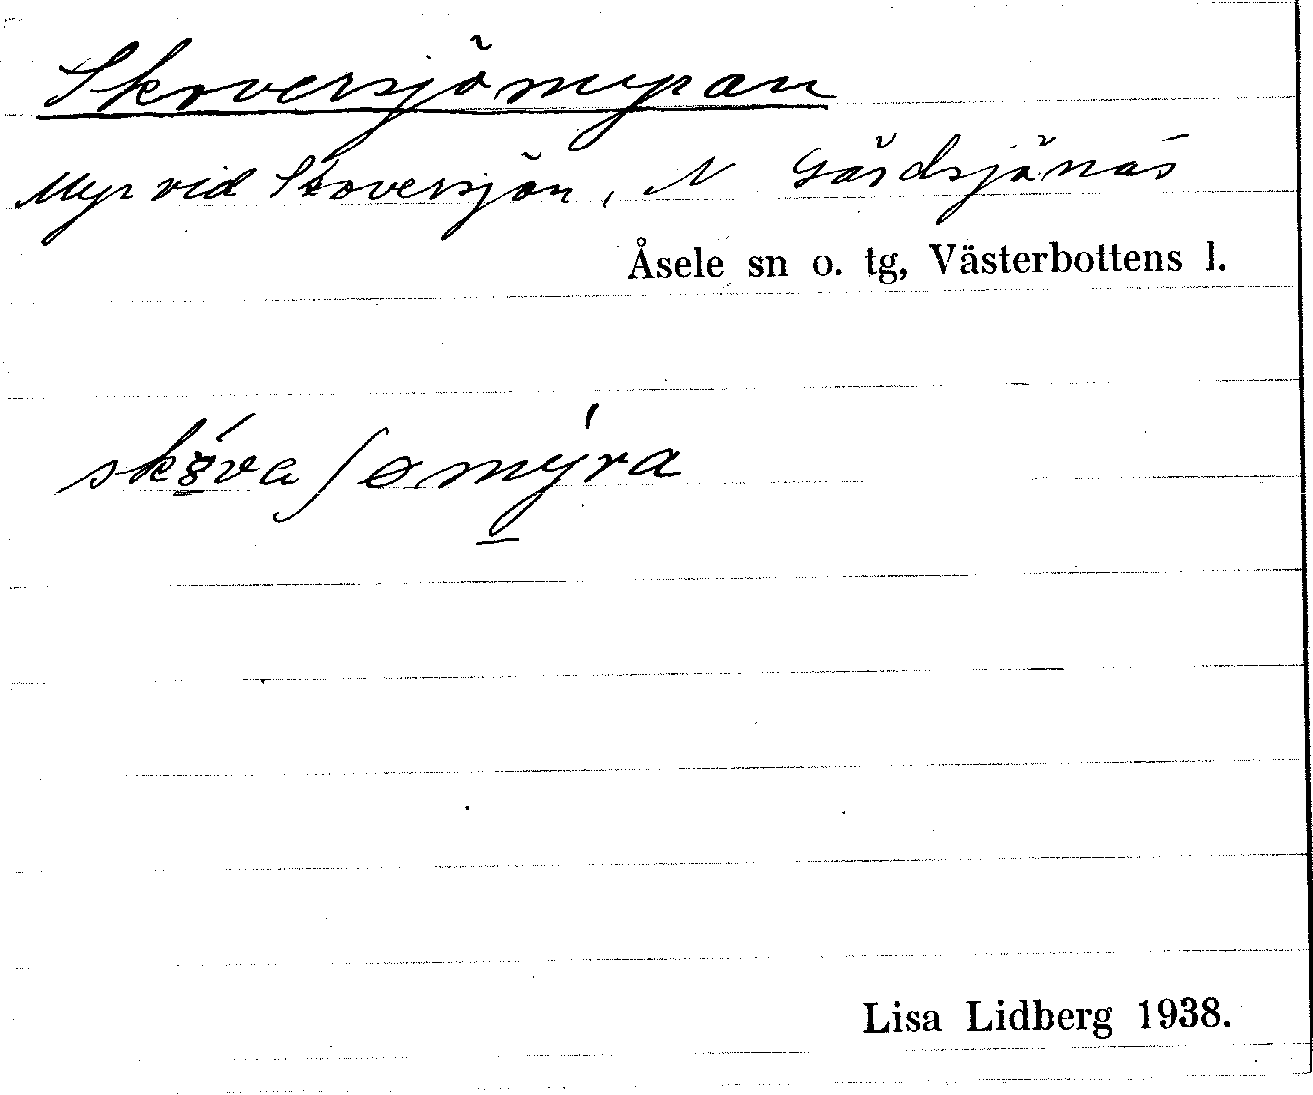 Skoversjömyran
Myr vid Skoversjön, N Gärdsjönäs
Åsele sn o. tg, Västerbottens l.
Lisa Lidberg 1938.